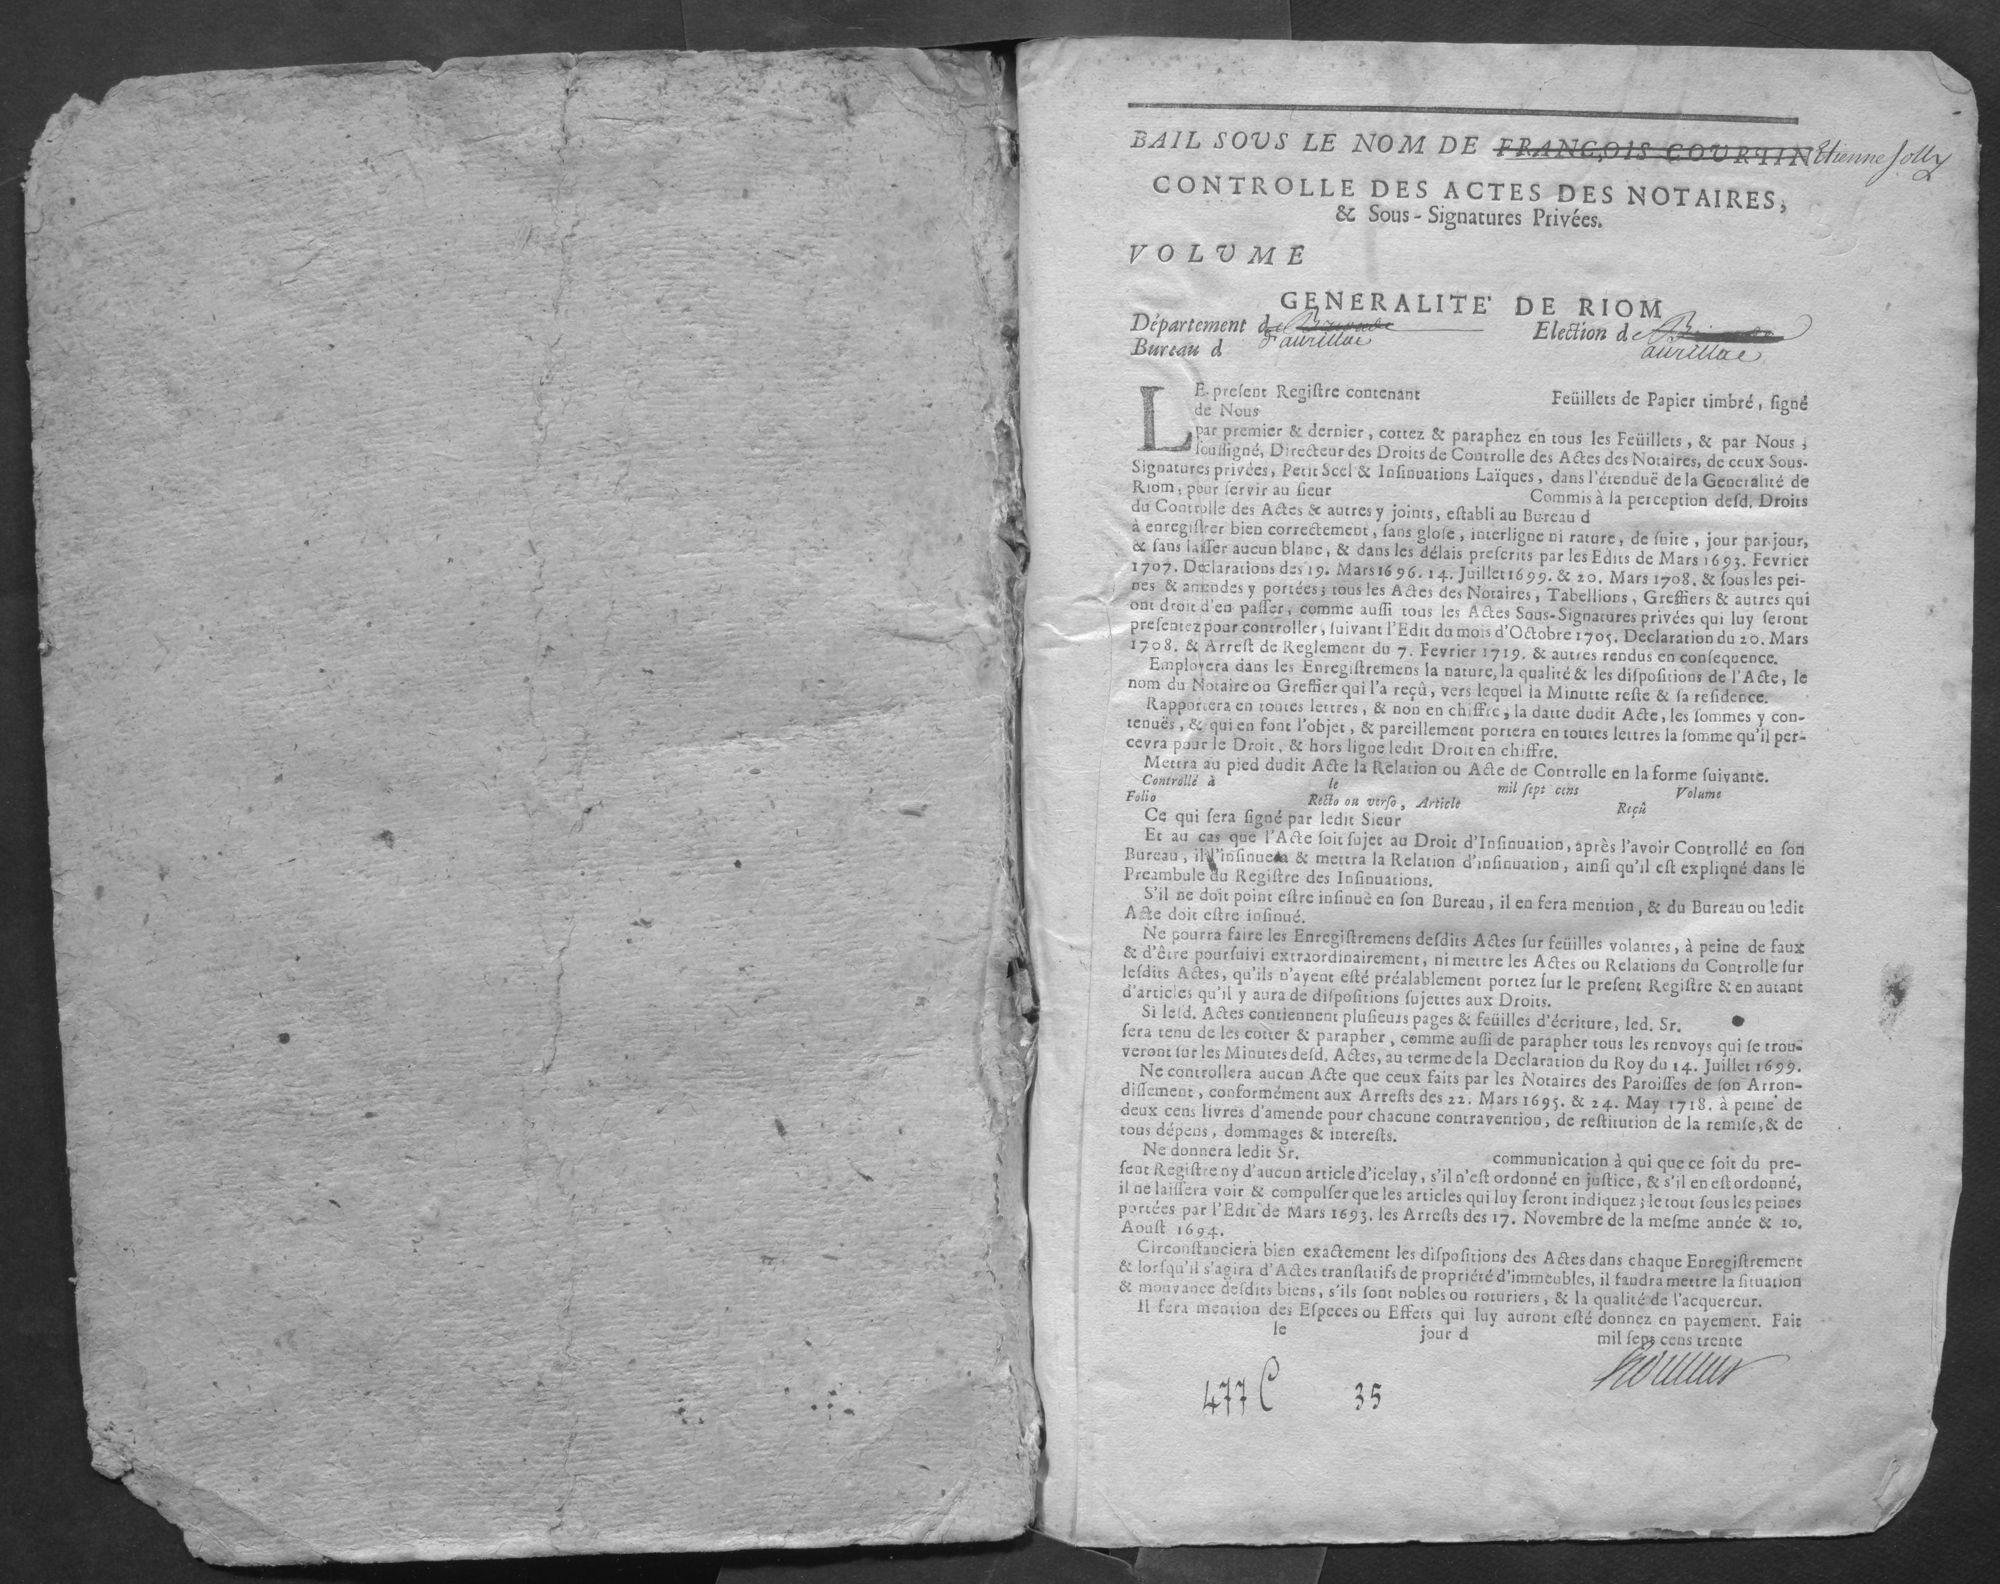 BAIL SOUS LE NOM DE FRANÇOIS COURTIN Etienne Jolly
CONTROLLE DES ACTES DES NOTAIRES,
& Sous-Signatures Privées.
VOLUME
GENERALITE' DE RIOM
Département de d'aurillac Election de
Bureau d aurillac
LE present Registre contenant Feüillets de Papier timbré, signé
de Nous
par premier & dernier, cottez & paraphez en tous les Feüillets, & par Nous,
soussigné, Directeur des Droits de Controlle des Actes des Notaires, de ceux Sous-
Signatures privées, Petit Scel & Insinuations Laïques, dans l'étenduë de la Generalité de
Riom, pour servir au sieur Commis à la perception desd. Droits
du Controlle des Actes & autres y joints, establi au Bureau d
à enregistrer bien correctement, sans glose, interligne ni rature, de suite, jour par jour,
& sans laisser aucun blanc, & dans les délais prescrits par les Edits de Mars 1693. Fevrier
1707. Declarations des 19. Mars 1696. 14. Juillet 1699. & 20. Mars 1708. & sous les pei-
nes & amendes y portées; tous les Actes des Notaires, Tabellions, Greffiers & autres qui
ont droit d'en passer, comme aussi tous les Actes Sous-Signatures privées qui luy seront
presentez pour controller, suivant l'Edit du mois d'Octobre 1705. Declaration du 20. Mars
1708. & Arrest de Reglement du 7. Fevrier 1719. & autres rendus en consequence.
Employera dans les Enregistremens la nature, la qualité & les dispositions de l'Acte, le
nom du Notaire ou Greffier qui l'a reçû, vers lequel la Minutte reste & sa residence.
Rapportera en toutes lettres, & non en chiffre, la datte dudit Acte, les sommes y con-
tenuës, & qui en font l'objet, & pareillement portera en toutes lettres la somme qu'il per-
cevra pour le Droit, & hors ligne ledit Droit en chiffre.
Mettra au pied dudit Acte la Relation ou Acte de Controlle en la forme suivante.
Controllé à le mil sept cens Volume
Folio Recto ou verso, Article Reçû
Ce qui sera signé par ledit Sieur
Et au cas que l'Acte soit sujet au Droit d'Insinuation, après l'avoir Controllé en son
Bureau, il l'insinuera & mettra la Relation d'insinuation, ainsi qu'il est expliqué dans le
Preambule du Registre des Insinuations.
S'il ne doit point estre insinué en son Bureau, il en fera mention, & du Bureau ou ledit
Acte doit estre insinué.
Ne pourra faire les Enregistremens desdits Actes sur feüilles volantes, à peine de faux
& d'être poursuivi extraordinairement, ni mettre les Actes ou Relations du Controlle sur
lesdits Actes, qu'ils n'ayent esté préalablement portez sur le present Registre & en autant
d'articles qu'il y aura de dispositions sujettes aux Droits.
Si lesd. Actes contiennent plusieurs pages & feüilles d'écriture, led. Sr.
sera tenu de les cotter & parapher, comme aussi de parapher tous les renvoys qui se trou-
veront sur les Minutes desd. Actes, au terme de la Declaration du Roy du 14. Juillet 1699.
Ne controllera aucun Acte que ceux faits par les Notaires des Paroisses de son Arron-
dissement, conformément aux Arrests des 22. Mars 1695. & 24. May 1718. à peine de
deux cens livres d'amende pour chacune contravention, de restitution de la remise, & de
tous dépens, dommages & interests.
Ne donnera ledit Sr. communication à qui que ce soit du pre-
sent Registre ny d'aucun article d'iceluy, s'il n'est ordonné en justice, & s'il en est ordonné,
il ne laissera voir & compulser que les articles qui luy seront indiquez; le tout sous les peines
portées par l'Edit de Mars 1693. les Arrests des 17. Novembre de la mesme année & 10.
Aoust 1694.
Circonstanciera bien exactement les dispositions des Actes dans chaque Enregistrement
& lorsqu'il s'agira d'Actes translatifs de propriété d'immeubles, il faudra mettre la situation
& mouvance desdits biens, s'ils sont nobles ou roturiers, & la qualité de l'acquereur.
Il fera mention des Especes ou Effets qui luy auront esté donnez en payement. Fait
le jour d mil sept cens trente
477 C 35